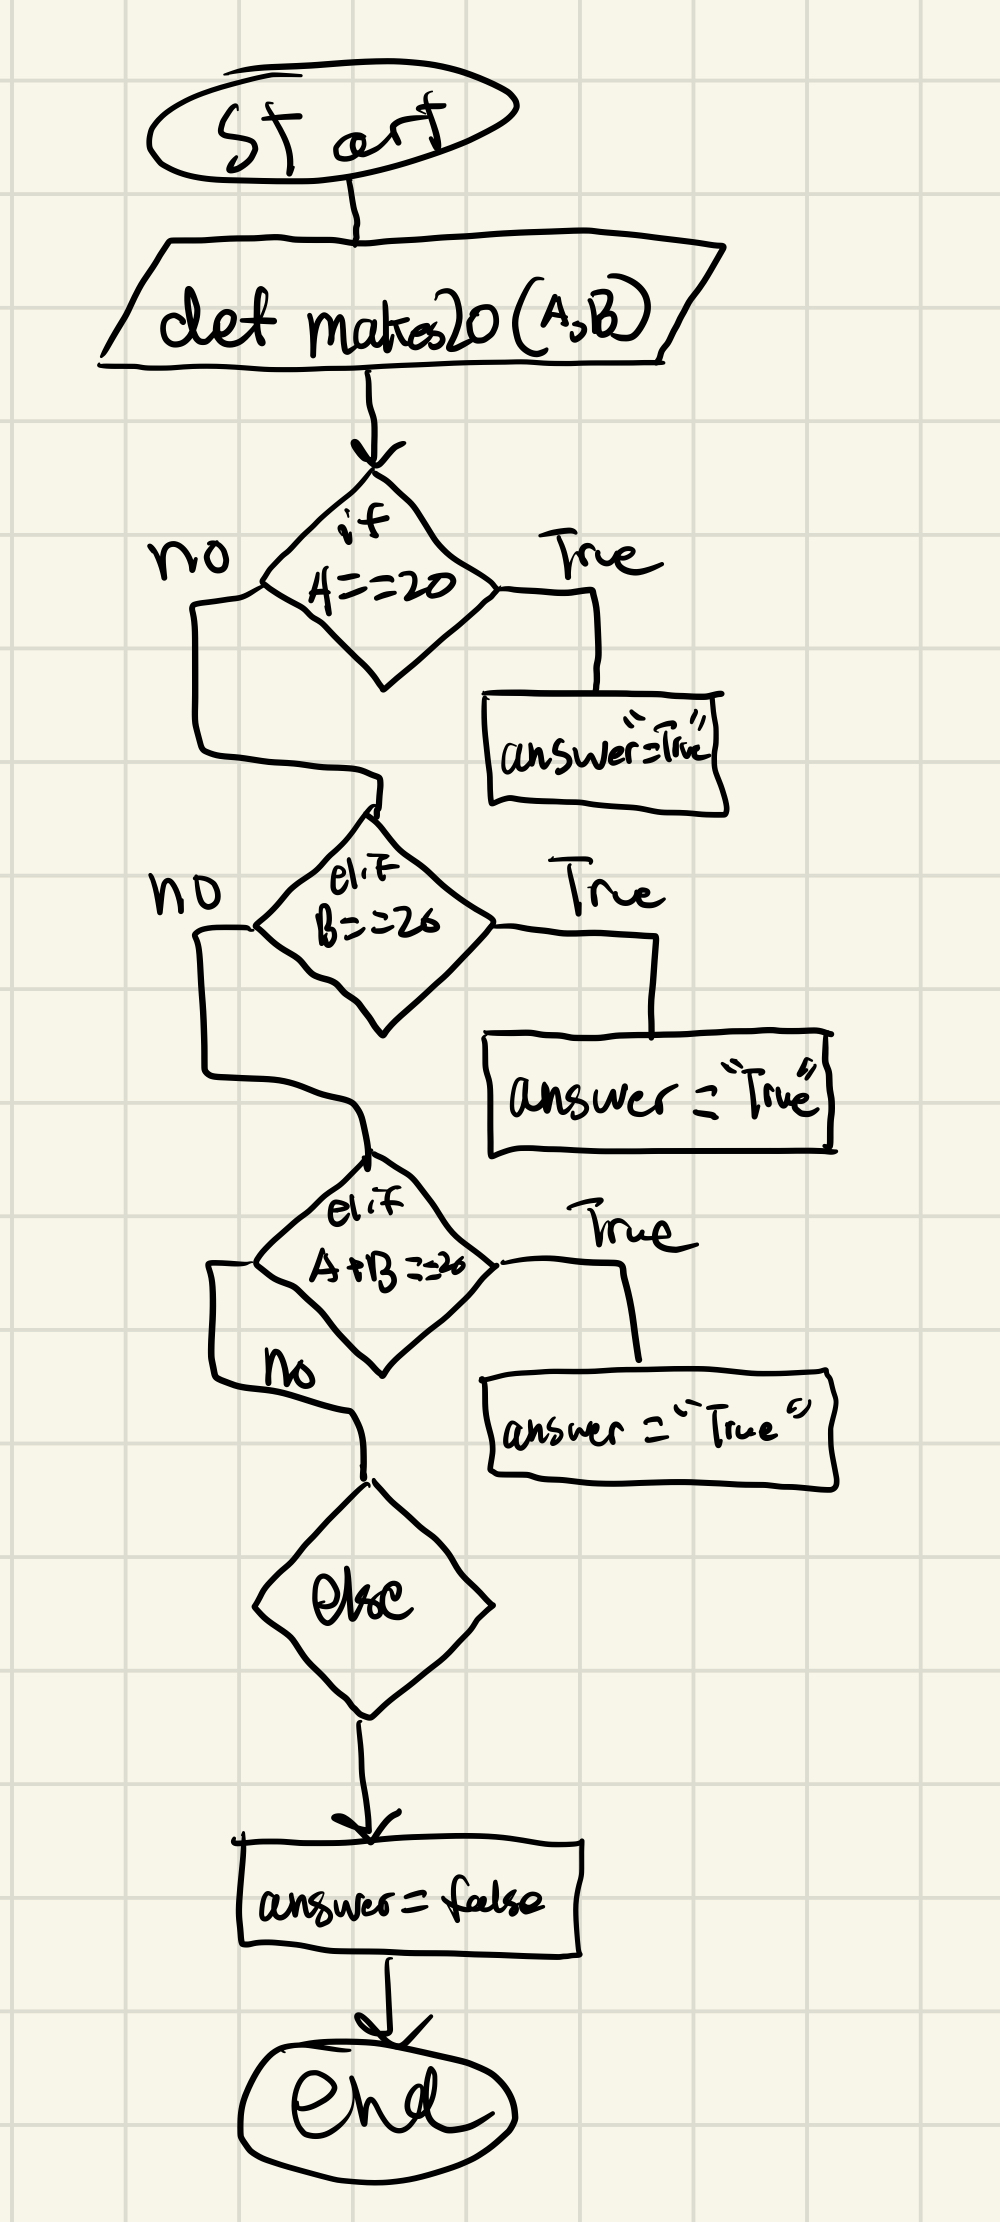 Start
def makes20 (A,B)
if
A==20
no
True
answer="True"
elif
B==20
no
True
answer = "True"
elif
A+B==20
True
no
answer = "True"
else
answer = false
end